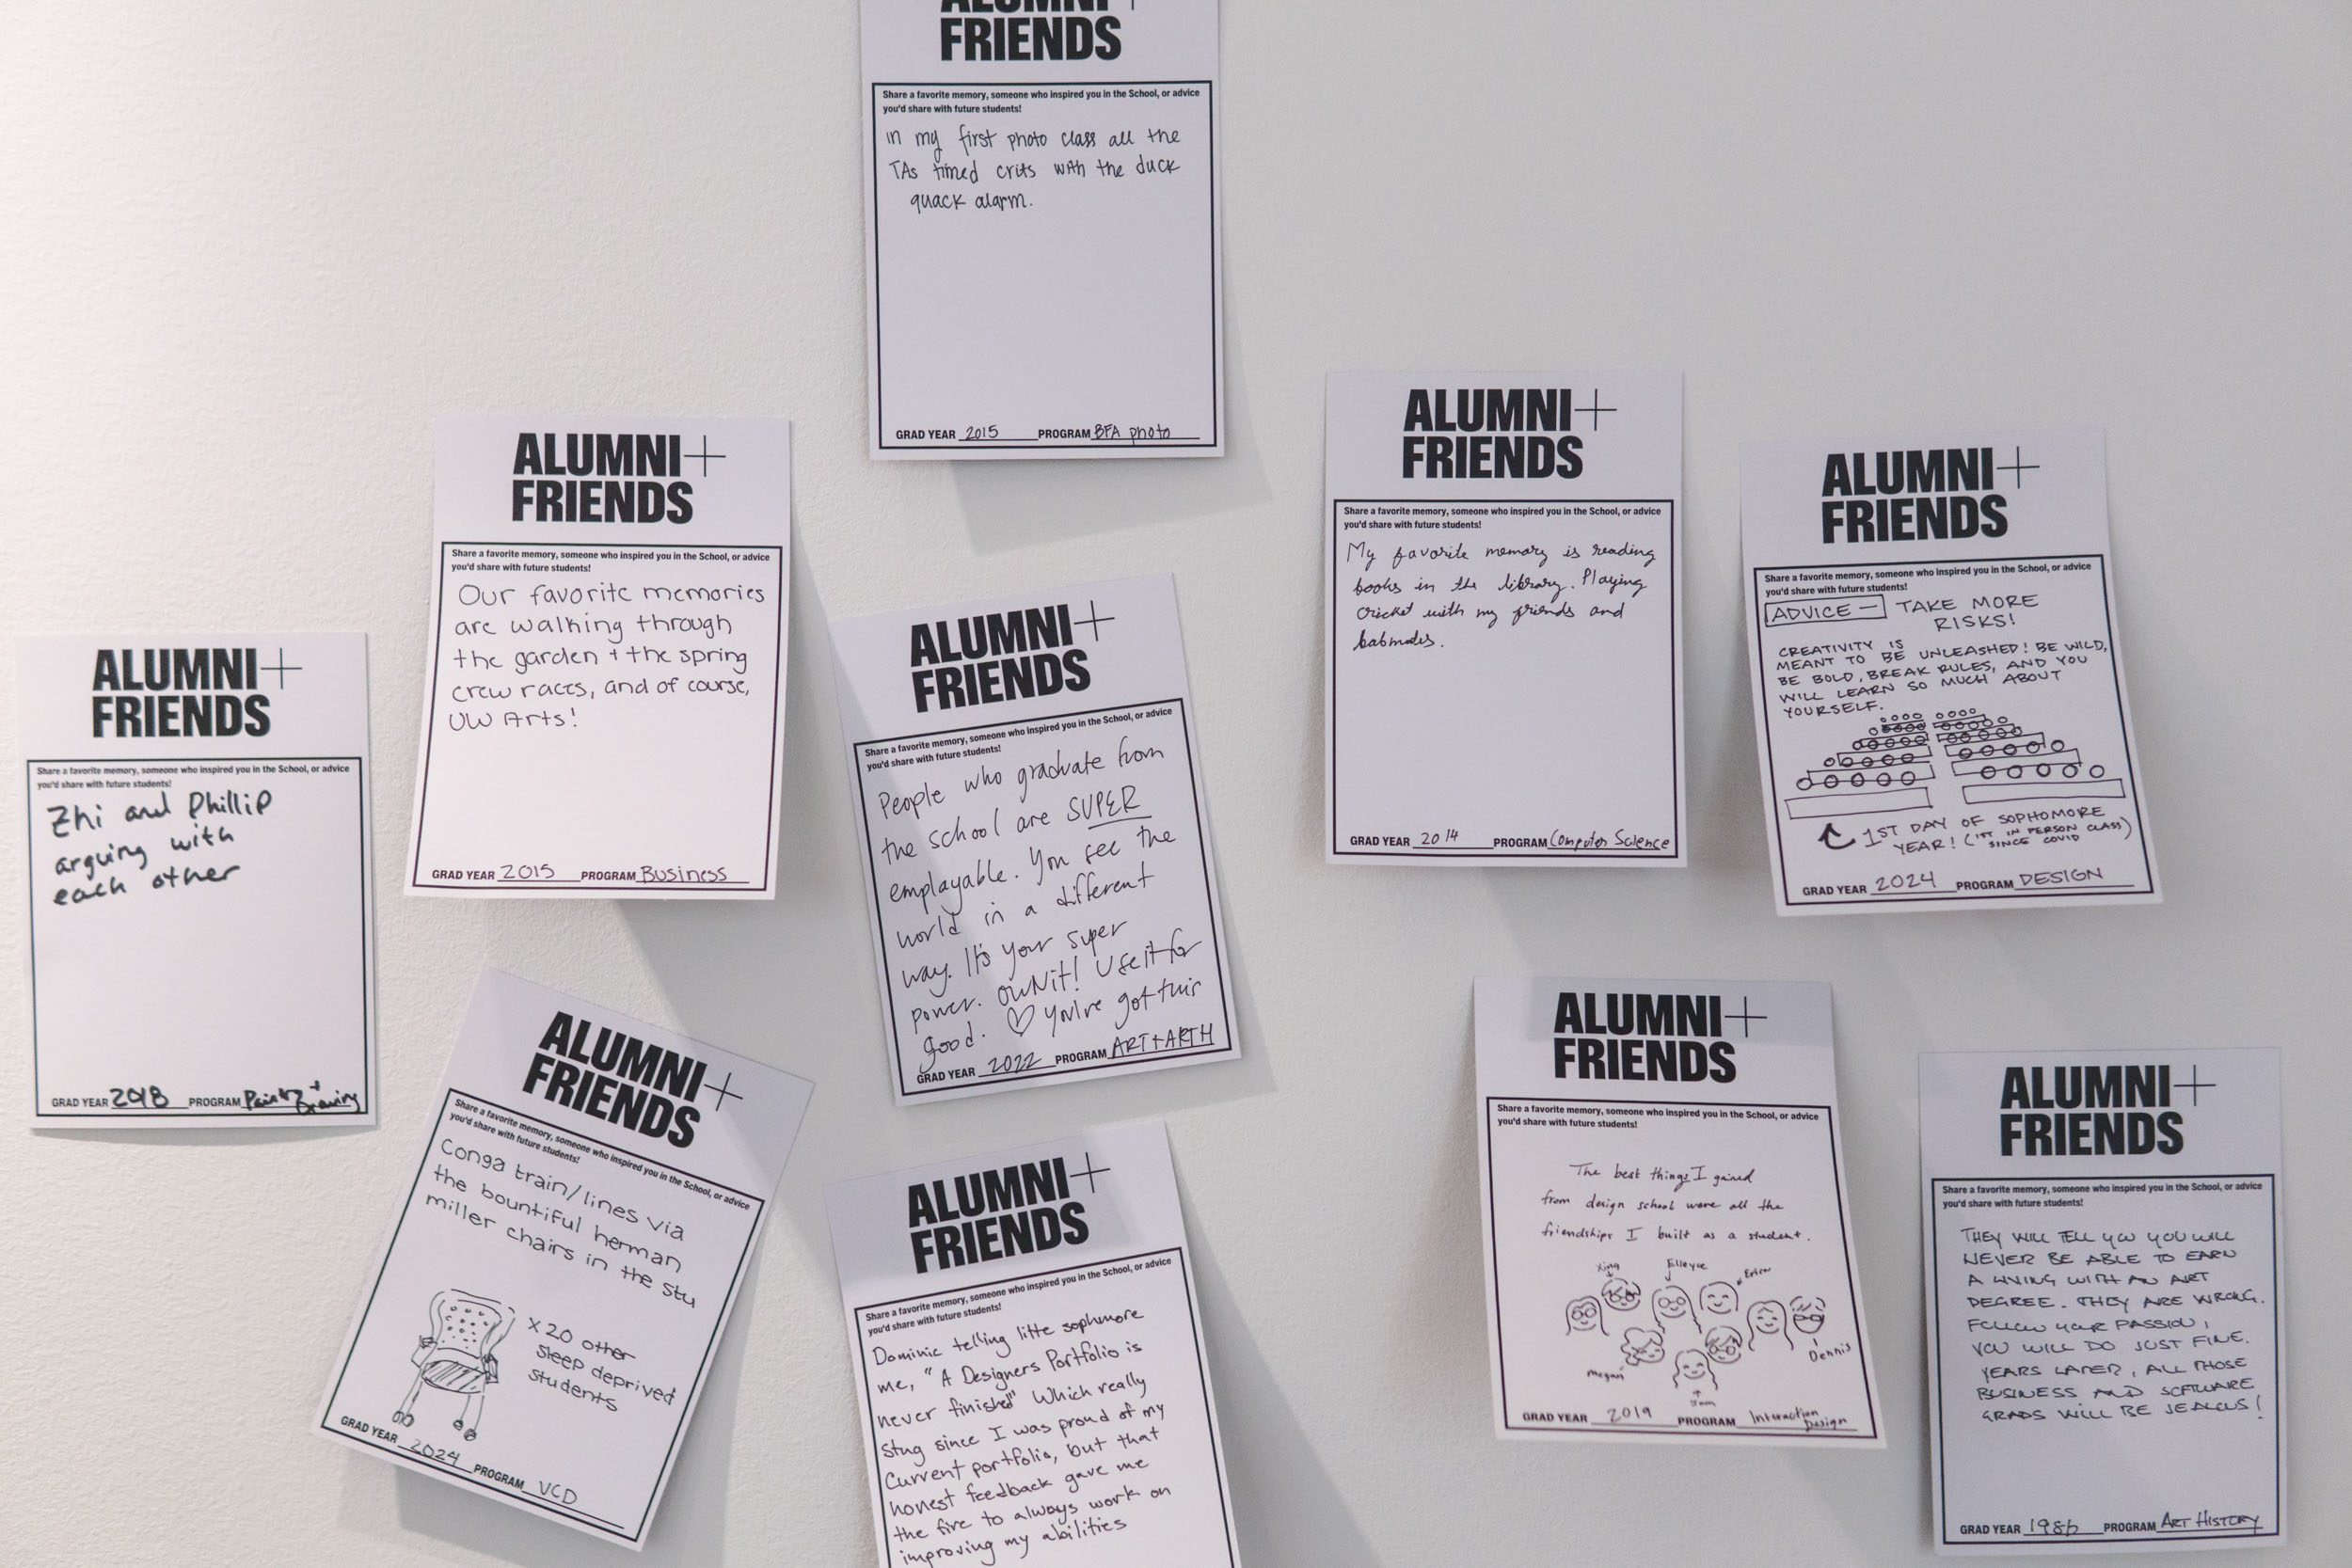 ALUMNI+
FRIENDS
Share a favorite memory, someone who inspired you in the School, or advice
you'd share with future students!
in my first photo class all the
TAs timed crits with the duck
quack alarm.
GRAD YEAR 2015 PROGRAM BFA photo
ALUMNI+
FRIENDS
Share a favorite memory, someone who inspired you in the School, or advice
you'd share with future students!
My favorite memory is reading
books in the library. Playing
cricket with my friends and
batmates.
GRAD YEAR 2014 PROGRAM Computer Science
ALUMNI+
FRIENDS
Share a favorite memory, someone who inspired you in the School, or advice
you'd share with future students!
Our favorite memories
are walking through
the garden + the spring
crew races, and of course,
UW Arts!
GRAD YEAR 2015 PROGRAM Business
ALUMNI+
FRIENDS
Share a favorite memory, someone who inspired you in the School, or advice
you'd share with future students!
ADVICE — TAKE MORE
RISKS!
CREATIVITY IS
MEANT TO BE UNLEASHED! BE WILD,
BE BOLD, BREAK RULES, AND YOU
WILL LEARN SO MUCH ABOUT
YOURSELF.
1ST DAY OF SOPHOMORE
YEAR! (1ST IN PERSON CLASS)
SINCE COVID
GRAD YEAR 2024 PROGRAM DESIGN
ALUMNI+
FRIENDS
Share a favorite memory, someone who inspired you in the School, or advice
you'd share with future students!
Zhi and Phillip
arguing with
each other
GRAD YEAR 2018 PROGRAM Painting + Drawing
ALUMNI+
FRIENDS
Share a favorite memory, someone who inspired you in the School, or advice
you'd share with future students!
People who graduate from
the school are SUPER
employable. You see the
world in a different
way. It's your super
power. OWN it! Use it for
good. ♡ You've got this
GRAD YEAR 2022 PROGRAM ART+ARTH
ALUMNI+
FRIENDS
Share a favorite memory, someone who inspired you in the School, or advice
you'd share with future students!
Conga train/lines via
the bountiful herman
miller chairs in the stu
x 20 other
sleep deprived
students
GRAD YEAR 2024 PROGRAM VCD
ALUMNI+
FRIENDS
Share a favorite memory, someone who inspired you in the School, or advice
you'd share with future students!
Dominic telling litte sophmore
me, "A Designers Portfolio is
never finished" Which really
stug since I was proud of my
current portfolio, but that
honest feedback gave me
the fire to always work on
improving my abilities
ALUMNI+
FRIENDS
Share a favorite memory, someone who inspired you in the School, or advice
you'd share with future students!
The best things I gained
from design school were all the
friendships I built as a student.
Xing Elleyce Erica
Dennis
Megan
GRAD YEAR 2019 PROGRAM Interaction Design
ALUMNI+
FRIENDS
Share a favorite memory, someone who inspired you in the School, or advice
you'd share with future students!
THEY WILL TELL YOU YOU WILL
NEVER BE ABLE TO EARN
A LIVING WITH AN ART
DEGREE. THEY ARE WRONG.
FOLLOW YOUR PASSION,
YOU WILL DO JUST FINE.
YEARS LATER, ALL THOSE
BUSINESS AND SOFTWARE
GRADS WILL BE JEALOUS!
GRAD YEAR 1986 PROGRAM ART HISTORY